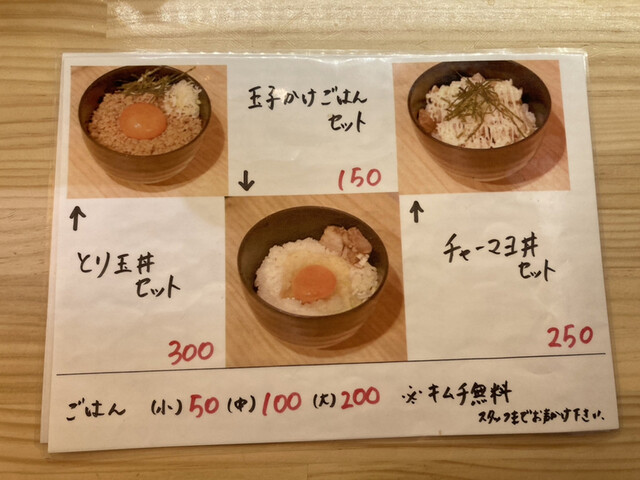 玉子かけごはん
セット
150
↓
↑
とり玉丼
セット
300
↑
チャーマヨ丼
セット
250
ごはん (小)50 (中)100 (大)200 ※キムチ無料
スタッフまでお声かけ下さい。